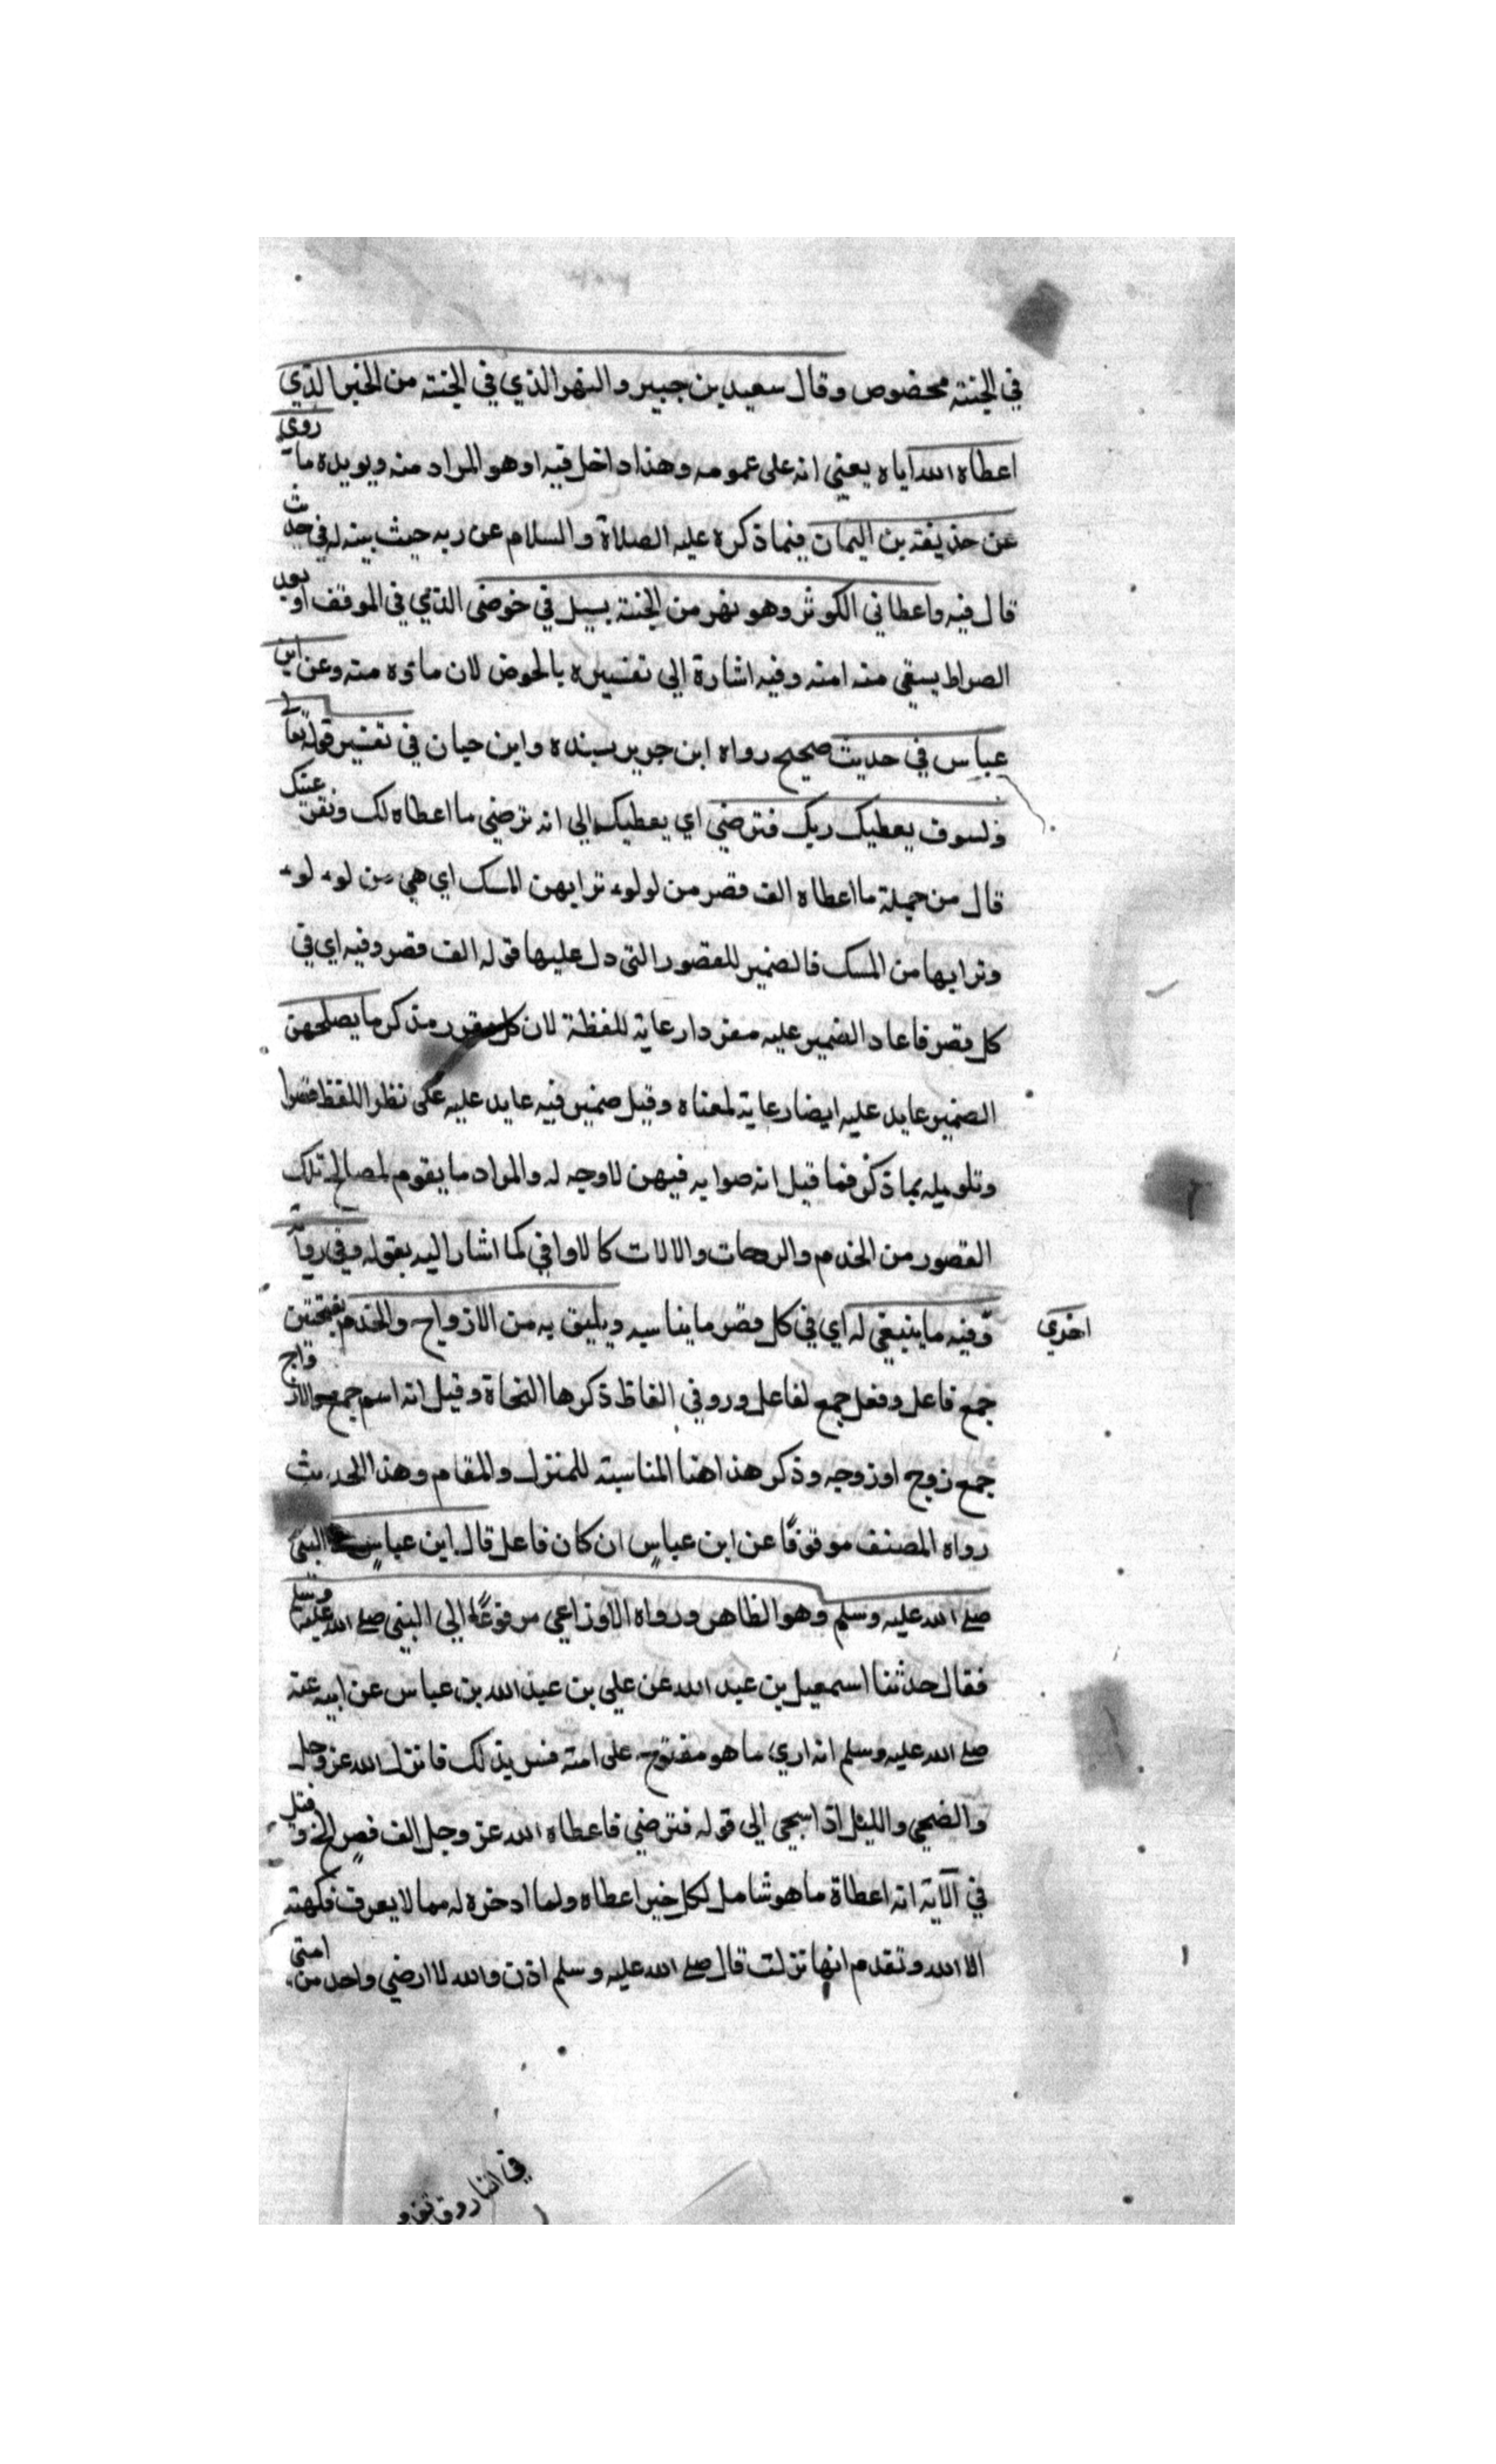 في الجنته مخصوص وقال سعيد بن جبير والنهر الذي في الجنته من الخير الذي
اعطاه الله اياه يعني انه على عمومه وهذا داخل فيه او هو المراد منه ويويده ما روي
عن حذيفته بن اليمان فيما ذكره عليه الصلاة والسلام عن ربه حيث بينه له في حديث
قال فيه واعطاني الكوثر وهو نهر من الجنته يسيل في حوضي الذي في الموقف او بعد
الصراط يسقي منه امته وفيه اشارة الي تفسيره بالحوض لان ماؤه منه وعن ابن
عباس في حديث صحيح رواه ابن جرير بسنده وابن حبان في تفسير قوله تعالى
ولسوف يعطيك ربك فترضي اي يعطيك الي انه ترضي ما اعطاه لك وتقر عينك
قال من جملة ما اعطاه الف قصر من لولوء ترابهن المسك اي هي من لوء لوء
وترابها من المسك فالضمير للقصور التي دل عليها قوله الف قصر وفيه اي في
كل قصر فاعاد الضمير عليه مفردا رعاية للفظة لان مذكر ما يصلحهن
الضمير عايد عليه ايضا رعاية لمعناه وقيل ضمير فيه عايد عليه على نظر اللفظ
بما ذكر فما قيل انه صوابه فيهن لا وجه له والمراد ما يقوم لمصالح تلك
القصور من الخدم والالات كالاواني كما اشار اليه بقوله وفي رواية
اخري
وفيه ما ينبغي له اي في كل قصر ما يناسبه ويليق به من الازواج والخدم بفتحتين
جمع فاعل وفعل جمع لفاعل ورو في الفاظ ذكرها النحاة وقيل انه اسم جمع والازواج
جمع زوج او زوجه وذكر هذا هنا المناسبته للمنزل والمقام وهذا الحديث
رواه المصنف موقوفًا عن ابن عباس ان كان فاعل قال ابن عباس النبي
صلى الله عليه وسلم وهو الظاهر ورواه الاوزاعي مرفوعًا الي النبي صلى الله عليه وسلم
فقال حدثنا اسمعيل بن عبد الله عن علي بن عبد الله بن عباس عن ابيه عنه
صلى الله عليه وسلم انه اري ما هو مفتوح على امته فسر بذلك فانزل الله عز وجل
والضحي والليل اذا سجي الي قوله فترضي فاعطاه الله عز وجل الف قصر الخ وقيل
في الآية انه اعطاة ما هو شامل لكل خير اعطاه ولما ادخره له مما لا يعرف
الا الله وتقدم انها نزلت قال صلى الله عليه وسلم اذن والله لا ارضي واحد من امتي
في النار